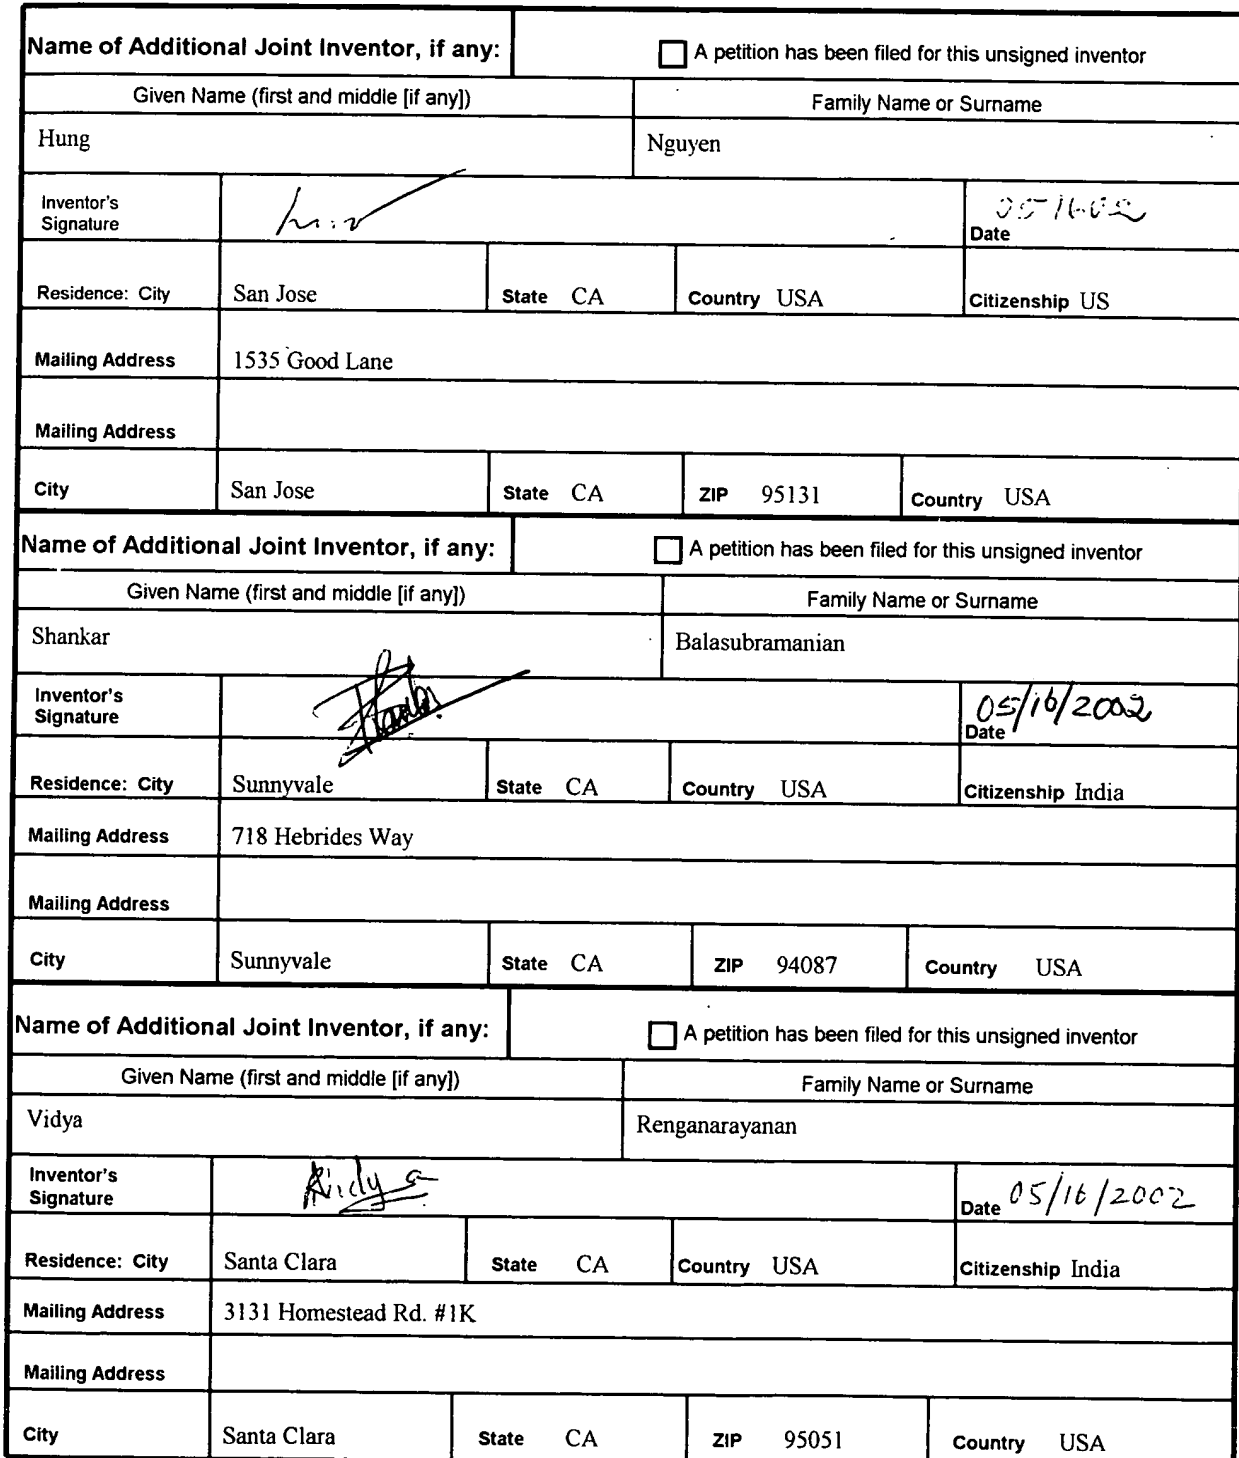 Name of Additional Joint Inventor, if any: A petition has been filed for this unsigned inventor
Given Name (first and middle [if any]) Family Name or Surname
Hung Nguyen
Inventor's
Signature
Date 05-16-02
Residence: City San Jose State CA Country USA Citizenship US
Mailing Address 1535 Good Lane
Mailing Address
City San Jose State CA ZIP 95131 Country USA
Name of Additional Joint Inventor, if any: A petition has been filed for this unsigned inventor
Given Name (first and middle [if any]) Family Name or Surname
Shankar Balasubramanian
Inventor's
Signature Shankar
Date 05/16/2002
Residence: City Sunnyvale State CA Country USA Citizenship India
Mailing Address 718 Hebrides Way
Mailing Address
City Sunnyvale State CA ZIP 94087 Country USA
Name of Additional Joint Inventor, if any: A petition has been filed for this unsigned inventor
Given Name (first and middle [if any]) Family Name or Surname
Vidya Renganarayanan
Inventor's
Signature Vidya
Date 05/16/2002
Residence: City Santa Clara State CA Country USA Citizenship India
Mailing Address 3131 Homestead Rd. #1K
Mailing Address
City Santa Clara State CA ZIP 95051 Country USA